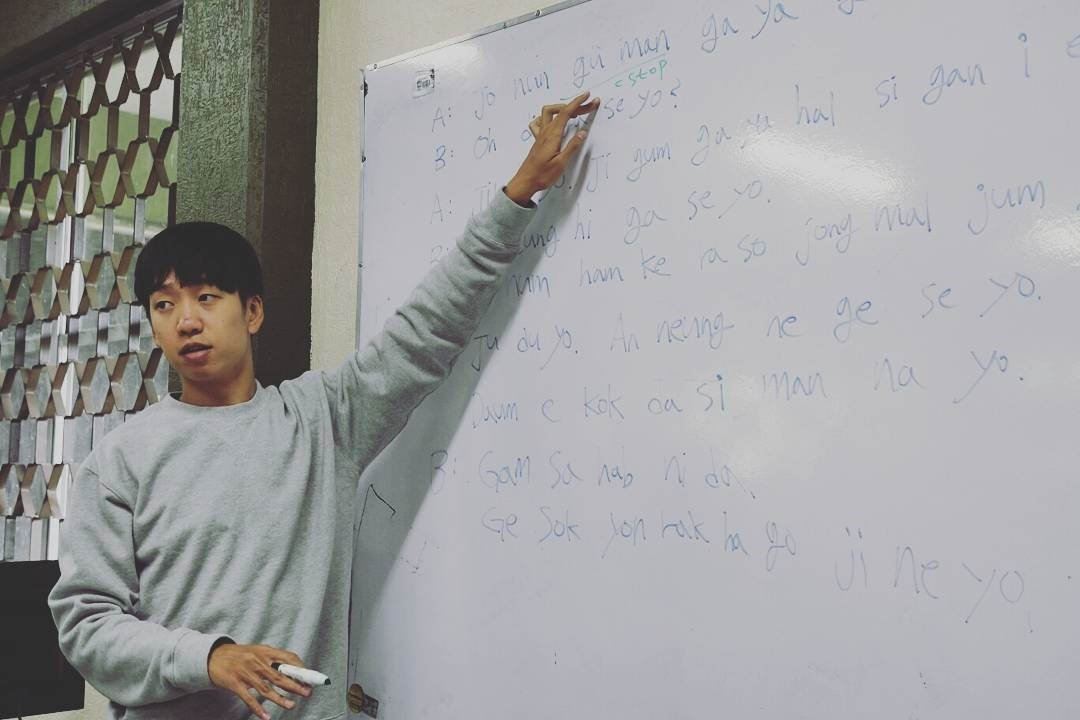 A: Jo nun gu man ga ya
<stop
B: Oh se yo?
A: Ji gum ga ya hal si gan i e
hi ga se yo.
ham ke ra so jong mal jum
Ju du yo. An neung ne ge se yo.
Daum e kok oa si man na yo.
B: Gam Sa hab ni da.
Ge Sok yon rak ha go ji ne yo